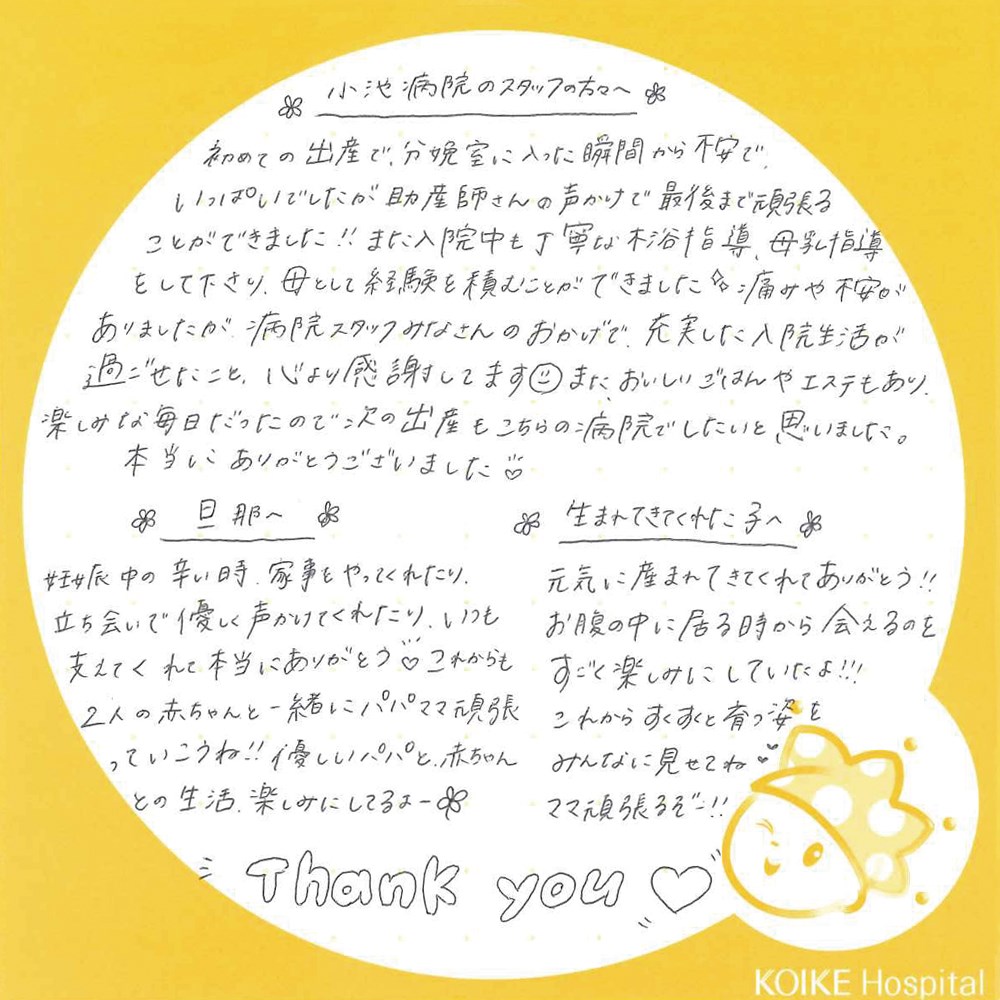 小池病院のスタッフの方々へ
初めての出産で、分娩室に入った瞬間から不安で、
いっぱいでしたが助産師さんの声かけで最後まで頑張る
ことができました!! また入院中も丁寧な沐浴指導、母乳指導
をして下さり、母として経験を積むことができました 痛みや不安が
ありましたが、病院スタッフみなさんのおかげで、充実した入院生活が
過ごせたこと、心より感謝してます また、おいしいごはんやエステもあり、
楽しみな毎日だったので次の出産もこちらの病院でしたいと思いました。
本当にありがとうございました♡
旦那へ
妊娠中の辛い時、家事をやってくれたり、
立ち会いで優しく声かけてくれたり、いつも
支えてくれて本当にありがとう♡これからも
2人の赤ちゃんと一緒にパパママ頑張
っていこうね!! 優しいパパと、赤ちゃん
との生活、楽しみにしてるよー
生まれてきてくれたこ子へ
元気に産まれてきてくれてありがとう!!
お腹の中に居る時から会えるのを
すごく楽しみにしていたよ!!!
これからすくすくと育つ姿を
みんなに見せてね
ママ頑張るぞー!!
Thank you ♡
KOIKE Hospital